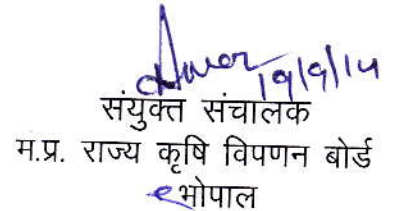 19/9/14
संयुक्त संचालक
म.प्र. राज्य कृषि विपणन बोर्ड
भोपाल